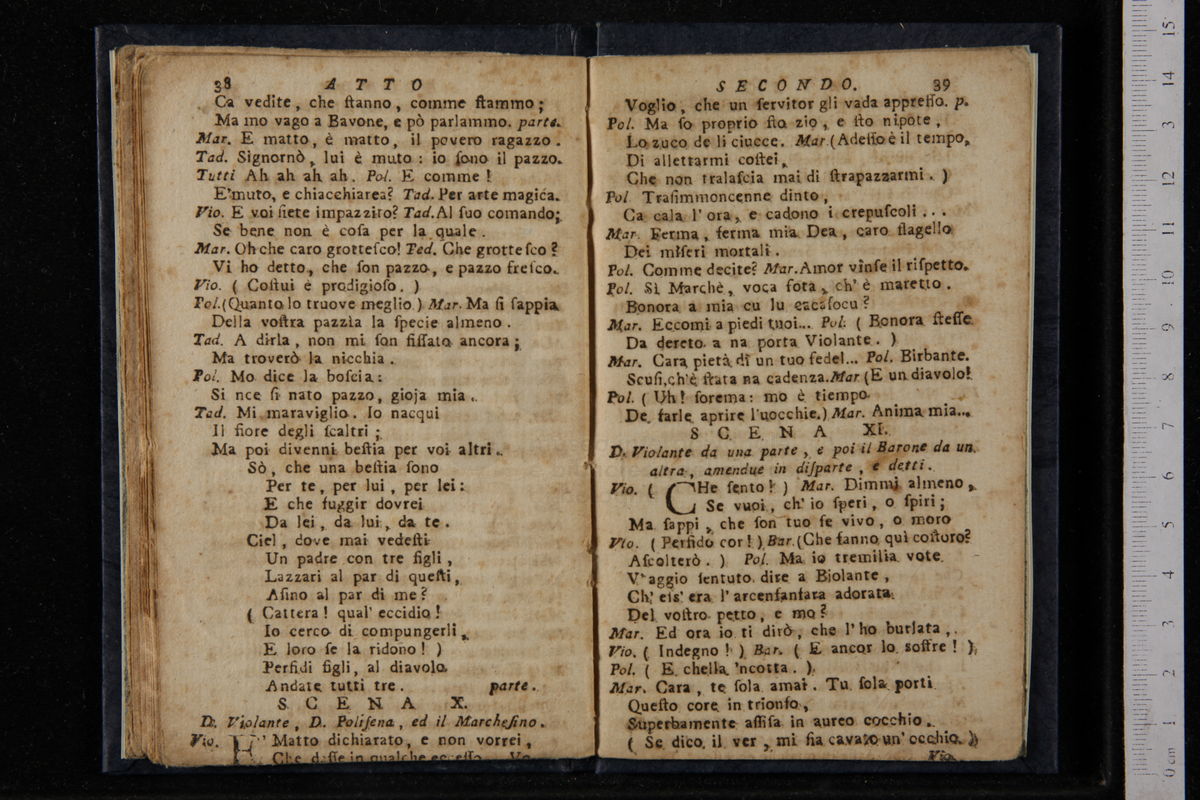 38 ATTO
Ca vedite, che ſtanno, comme ſtammo;
Ma mo vago a Bavone, e pò parlammo. parte.
Mar. E matto, è matto, il povero ragazzo.
Tad. Signornò, lui è muto: io ſono il pazzo.
Tutti Ah ah ah ah. Pol. E comme!
E'muto, e chiacchiarea? Tad. Per arte magica.
Vio. E voi ſiete impazziro? Tad. Al ſuo comando;
Se bene non è coſa per la quale.
Mar. Oh che caro grotteſco! Ted. Che grotteſco?
Vi ho detto, che ſon pazzo, e pazzo freſco.
Vio. ( Coſtui è prodigioſo. )
Pol. (Quanto lo truove meglio.) Mar. Ma ſi ſappia
Della voſtra pazzia la ſpecie almeno.
Tad. A dirla, non mi ſon fiſſato ancora;
Ma troverò la nicchia.
Pol. Mo dice la boſcia:
Si nce ſi nato pazzo, gioja mia.
Tad. Mi maraviglio. Io nacqui
Il fiore degli ſcaltri;
Ma poi divenni beſtia per voi altri.
Sò, che una beſtia ſono
Per te, per lui, per lei:
E che fuggir dovrei
Da lei, da lui, da te.
Ciel, dove mai vedeſti
Un padre con tre figli,
Lazzari al par di queſti,
Aſino al par di me?
( Cattera! qual' eccidio!
Io cerco di compungerli,
E loro ſe la ridono! )
Perfidi figli, al diavolo
Andate tutti tre. parte.
SCENA X.
D. Violante, D. Poliſena, ed il Marcheſino.
Vio. E' Matto dichiarato, e non vorrei,
Che daſſe in qualche
SECONDO. 39
Voglio, che un ſervitor gli vada appreſſo. p.
Pol. Ma ſo proprio ſto zio, e ſto nipote,
Lo zuco de li ciucce. Mar. (Adeſſo è il tempo,
Di allettarmi coſtei,
Che non tralaſcia mai di ſtrapazzarmi. )
Pol Traſimmoncenne dinto,
Ca cala l'ora, e cadono i crepuſcoli...
Mar. Ferma, ferma mia Dea, caro flagello
Dei miſeri mortali.
Pol. Comme decite? Mar. Amor vinſe il riſpetto.
Pol. Sì Marchè, voca fora, ch' è maretto.
Bonora a mia cu lu scasafocu?
Mar. Eccomi a piedi tuoi... Pol: ( Bonora ſteſſe
Da dereto a na porta Violante. )
Mar. Cara pietà di un tuo fedel... Pol. Birbante.
Scuſi, ch'è ſtata na cadenza. Mar (E un diavolo!
Pol. ( Uh! ſorema: mo è tiempo
De farle aprire l'uocchie.) Mar. Anima mia...
SCENA XI.
D. Violante da una parte, e poi il Barone da un
altra, amendue in diſparte, e detti.
Vio. ( CHe ſento! ) Mar. Dimmi almeno,
Se vuoi, ch' io ſperi, o ſpiri;
Ma ſappi, che ſon tuo ſe vivo, o moro
Vio. ( Perfido cor! ) Bar. (Che fanno quì coſtoro?
Aſcolterò. ) Pol. Ma io tremilia vote
V'aggio ſentuto dire a Biolante,
Ch' eis' era l' arcenfanfara adorata
Del voſtro petto, e mo?
Mar. Ed ora io ti dirò, che l' ho burlata,
Vio. ( Indegno! ) Bar. ( E ancor lo soffre! )
Pol. ( E chella 'ncotta. )
Mar. Cara, te ſola amai. Tu ſola porti
Queſto core in trionfo,
Superbamente aſſiſa in aureo cocchio.
( Se dico il ver, mi ſia cavato un' occhio. )
Vio.
0 cm 1 2 3 4 5 6 7 8 9 10 11 12 13 14 15